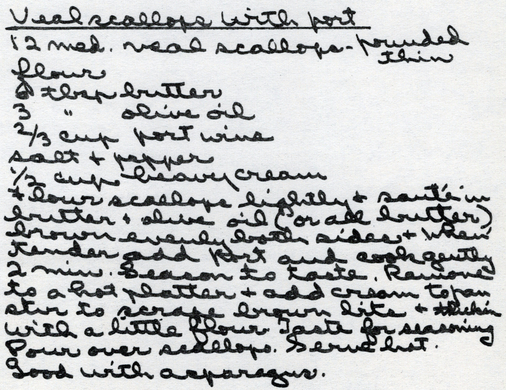 Veal scallops with port
12 med. veal scallops - pounded
thin
flour
tbsp butter
3 " olive oil
2/3 cup port wine
salt + pepper
1/2 cup heavy cream
Flour scallops lightly + sauté in
butter + olive oil (or all butter)
brown evenly both sides + when
tender add Port and cook gently
2 min. Season to taste. Remove
to a hot platter + add cream to pan
stir to scrape brown bits + thicken
with a little flour Taste for seasoning
Pour over scallops. Serve hot.
Good with asparagus.